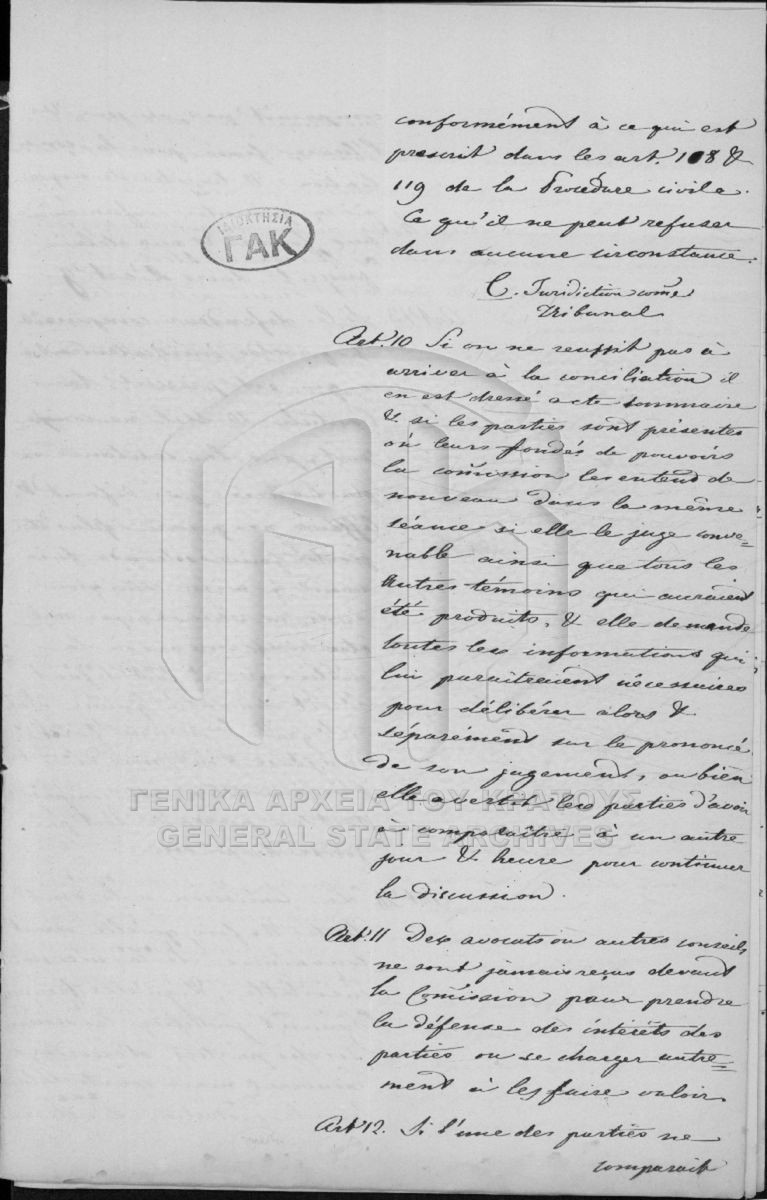 conformément à ce qui est
prescrit dans les art. 108 &
119 de la Procédure civile.
Ce qu'il ne peut refuser
dans aucune circonstance.
ΙΔΙΟΚΤΗΣΙΑ
ΓΑΚ
C. Juridiction come
Tribunal
Art. 10 Si on ne reussit pas à
arriver à la conciliation il
en est dressé acte sommaire
& si les parties sont présentes
où leurs fondés de pouvoirs
la comission les entend de
nouveau dans la même
séance si elle le juge conve=
nable ainsi que tous les
autres témoins qui auraient
été produits, & elle demande
toutes les informations qui
lui paraitraient nécessaires
pour délibérer alors &
séparément sur le prononcé
de son jugement, ou bien
elle avertit les parties d'avoir
à comparaître à un autre
jour & heure pour continuer
la discussion.
ΓΕΝΙΚΑ ΑΡΧΕΙΑ ΤΟΥ ΚΡΑΤΟΥΣ
GENERAL STATE ARCHIVES
Art. 11 Des avocats ou autres conseils
ne sont jamais reçus devant
la Comission pour prendre
la défense des intérêts des
parties ou se charger autre=
ment à les faire valoir.
Art. 12. Si l'une des parties ne
comparait